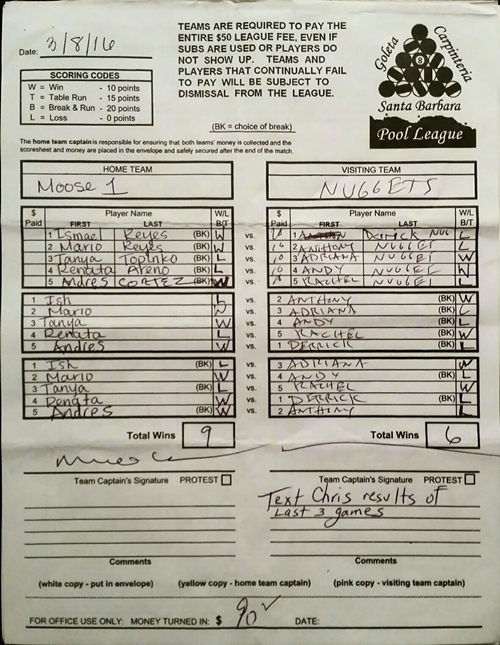 Date: 3/8/16
TEAMS ARE REQUIRED TO PAY THE
ENTIRE $50 LEAGUE FEE, EVEN IF
SUBS ARE USED OR PLAYERS DO
NOT SHOW UP. TEAMS AND
PLAYERS THAT CONTINUALLY FAIL
TO PAY WILL BE SUBJECT TO
DISMISSAL FROM THE LEAGUE.
Goleta
Carpinteria
8
Santa Barbara
Pool League
SCORING CODES
W = Win - 10 points
T = Table Run - 15 points
B = Break & Run - 20 points
L = Loss - 0 points
(BK = choice of break)
The home team captain is responsible for ensuring that both teams' money is collected and the
scoresheet and money are placed in the envelope and safely secured after the end of the match.
HOME TEAM VISITING TEAM
Moose 1 NUGGETS
$ Paid Player Name FIRST LAST W/L B/T $ Paid Player Name FIRST LAST W/L B/T
1 Ismael Reyes (BK) W vs. 10 1 Derrick NUG L
2 Mario Reyes (BK) W vs. 10 2 ANTHONY NUGGET L
3 Tanya Topinko (BK) L vs. 10 3 ADRIANA NUGGET W
4 Renata Areno (BK) L vs. 10 4 ANDY NUGGET W
5 Andres CORTEZ (BK) W vs. 10 5 RACHEL NUGGET L
1 Ish L vs. 2 ANTHONY (BK) W
2 Mario W vs. 3 ADRIANA (BK) L
3 Tanya W vs. 4 ANDY (BK) L
4 Renata L vs. 5 RACHEL (BK) W
5 Andres W vs. 1 DERRICK (BK) L
1 Ish (BK) L vs. 3 ADRIANA W
2 Mario W vs. 4 ANDY (BK) L
3 Tanya (BK) L vs. 5 RACHEL W
4 Renata W vs. 1 DERRICK (BK) L
5 Andres (BK) W vs. 2 ANTHONY L
Total Wins 9 Total Wins 6
Team Captain's Signature PROTEST Team Captain's Signature PROTEST
Text Chris results of
Last 3 games
Comments Comments
(white copy - put in envelope) (yellow copy - home team captain) (pink copy - visiting team captain)
FOR OFFICE USE ONLY: MONEY TURNED IN: $ 90 ✓ DATE: